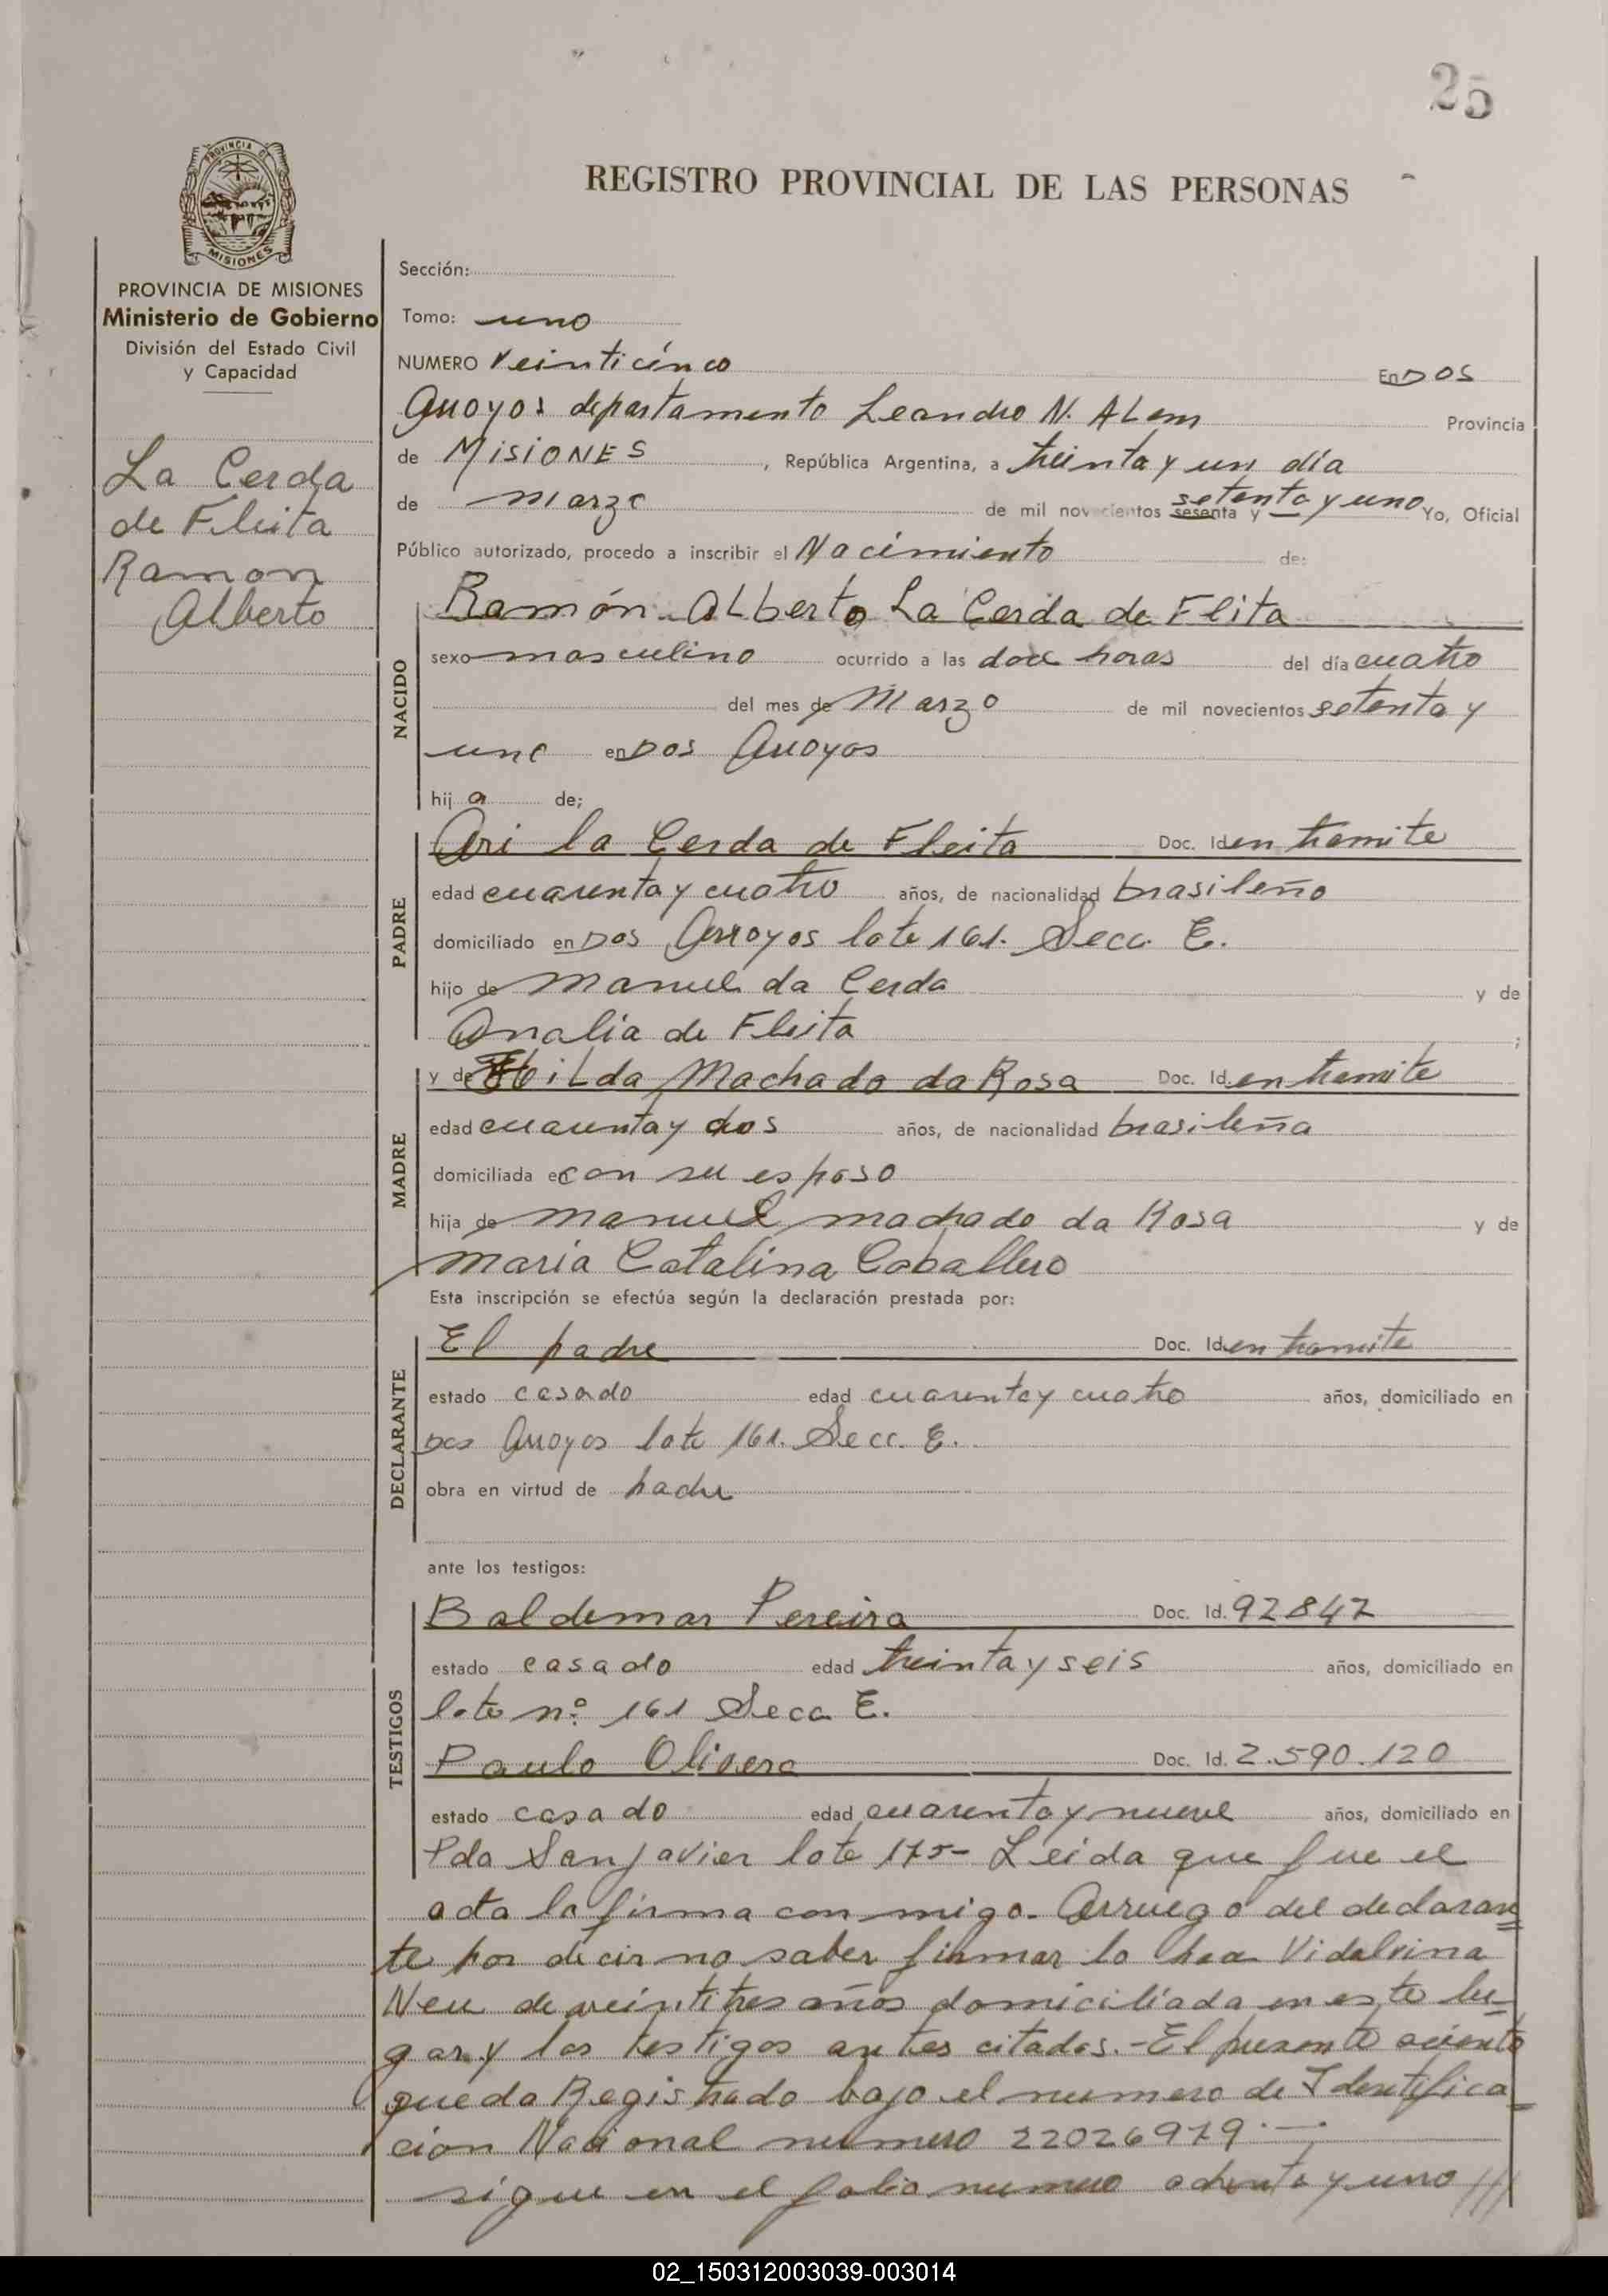 25
REGISTRO PROVINCIAL DE LAS PERSONAS
PROVINCIA DE MISIONES
MISIONES
PROVINCIA DE MISIONES
Ministerio de Gobierno
División del Estado Civil
y Capacidad
La Cerda
de Fleita
Ramon
Alberto
Sección:
Tomo: uno
NUMERO Veinticinco En Dos
Arroyos departamento Leandro N. ALem Provincia
de MISIONES, República Argentina, a treinta y un día
de marzo de mil novecientos sesenta y setenta y uno Yo, Oficial
Público autorizado, procedo a inscribir el Nacimiento de:
NACIDO
Ramón Alberto La Cerda de Flita
sexo masculino ocurrido a las doce horas del día cuatro
del mes de Marzo de mil novecientos setenta y
uno en Dos Arroyos
hij a de;
PADRE
Ari la Cerda de Fleita Doc. Id. en tramite
edad cuarenta y cuatro años, de nacionalidad brasileño
domiciliado en Dos Arroyos lote 161. Secc. E.
hijo de Manuel da Cerda y de
Analia de Fleita ;
MADRE
y de Hilda Machado da Rosa Doc. Id. en tramite
edad cuarenta y dos años, de nacionalidad brasileña
domiciliada en con su esposo
hija de Manuel machado da Rosa y de
Maria Catalina Caballero
Esta inscripción se efectúa según la declaración prestada por:
DECLARANTE
El padre Doc. Id. en tramite
estado casado edad cuarenta y cuatro años, domiciliado en
Dos Arroyos lote 161. Secc. E.
obra en virtud de padre
ante los testigos:
TESTIGOS
Baldemar Pereira Doc. Id. 92847
estado casado edad treinta y seis años, domiciliado en
lote nº 161 Secc E.
Paulo Olivera Doc. Id. 2.590.120
estado casado edad cuarenta y nueve años, domiciliado en
Pda San Javier lote 175- Leida que fue el
acta la firma con migo. Arruego del declaran=
te por decir no saber firmar lo hace Vidalvina
Neu de veintitres años domiciliada en este lu=
gar y los testigos antes citados.- El presente aciento
queda Registrado bajo el numero de Identifica=
cion Nacional numero 22026979.-
sigue en el folio numero ochenta y uno ///
02_150312003039-003014